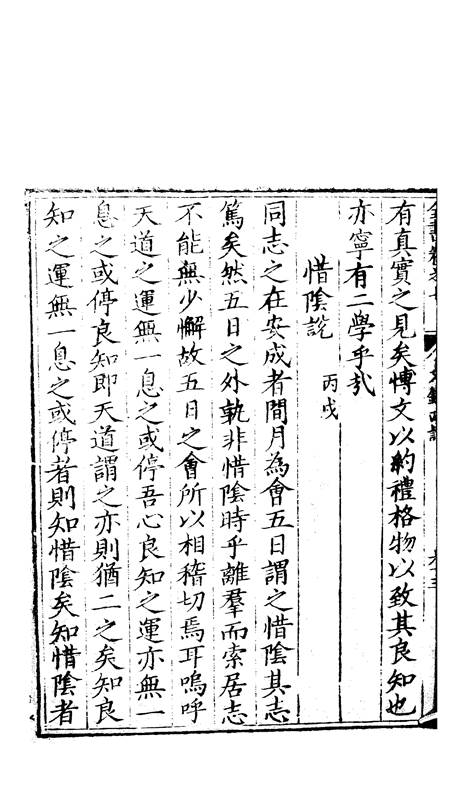 有真實之見矣愽文以約禮格物以致其良知也
亦寧有二學乎㢤
惜陰說 丙戌
同志之在安成者間月為會五日謂之惜陰其志
篤矣然五日之外孰非惜陰時乎離羣而索居志
不能無少懈故五日之會所以相稽切焉耳嗚呼
天道之運無一息之或停吾心良知之運亦無一
息之或停良知即天道謂之亦則猶二之矣知良
知之運無一息之或停者則知惜陰矣知惜陰者